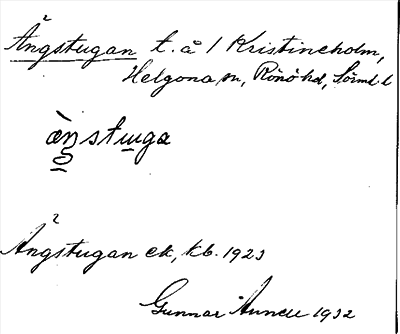 Ängstugan t. å 1 Kristineholm,
Helgona sn, Rönö hd, Sörml. l
ängstuga
Ängstugan ek, kb. 1923
Gunnar Annell 1932